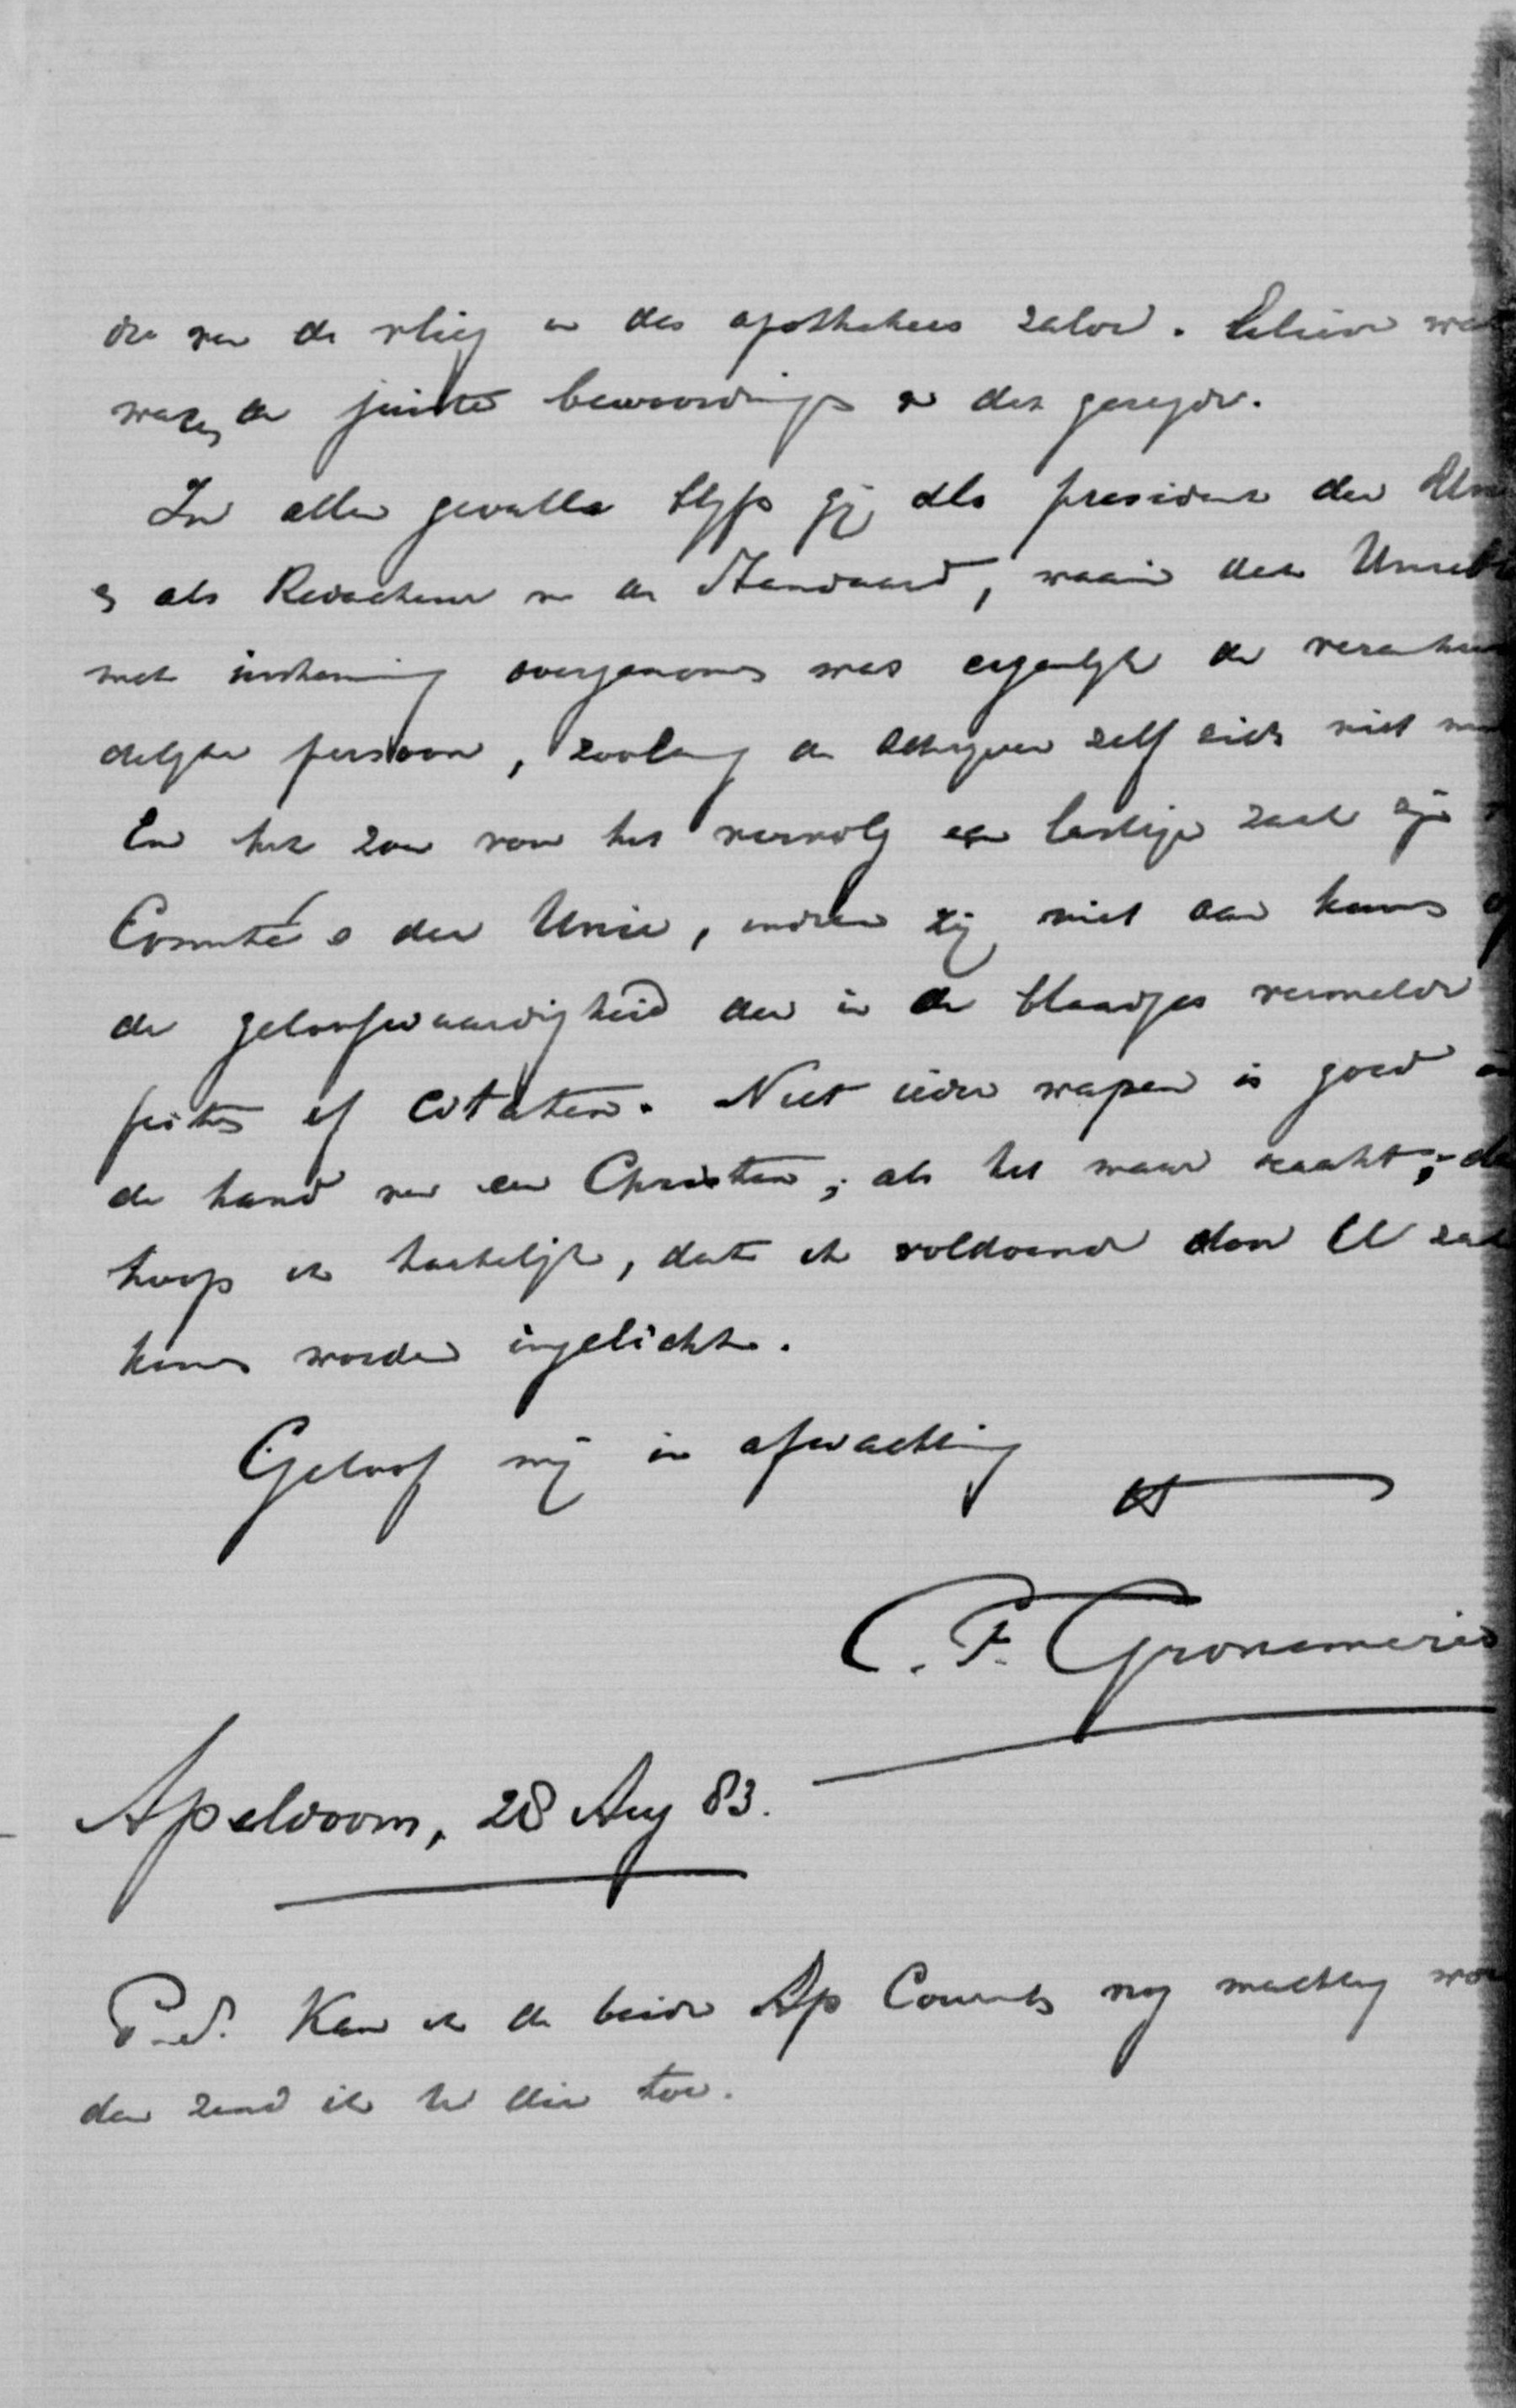 die van de vlieg in des apothekers zalve. Schier wat
waren de juiste bewoordingen van dat gezegde.
In allen gevalle blijft gij als president der Unie
en als Redacteur van de Standaard, waarin dat Unieblad
met instemming overgenomen was eigenlijk de verantwoor
delijke persoon, zoolang de schrijver zelf zich niet
En het zou voor het vervolg een lastige zaak zijn
Comité's der Unie, indien zij niet aan kunnen op
de geloofwaardigheid der in de blaadjes vermelde
feiten of citaten. Niet ieder wapen is goed in
de hand van een Christen, als het maar raakt; - daarom
hoop ik hartelijk, dat ik voldoende door U zal
kunnen worden ingelicht.
Geloof mij in afwachting
C. F. Gronemeijer
Apeldoorn, 28 Aug 83.
P.S. Kan ik de beide Ap Courants nog machtig worden
dan zend ik ze hier toe.